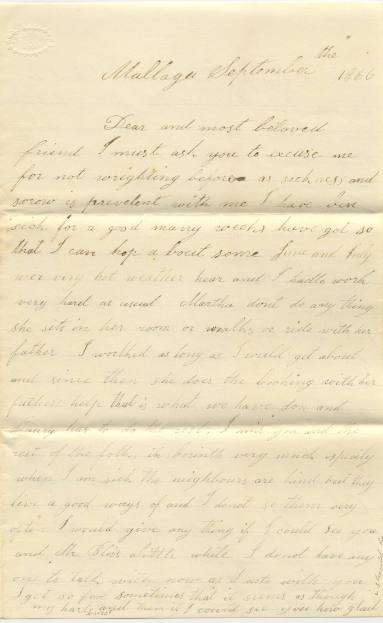 Mallaga September the " 1866
Dear and most beloved
friend I must ask you to excuse me
for not wrighting before as sickness and
sorow is prevelent with me I have ben
sick for a good manny weeks have got so
that I can hop a bout some June and July
wer very hot weather hear and I hadto work
very hard as usual Martha dont do any thing
she sets in her room or walks or ride with her
father I worked as long as I could get about
and since then she does the cooking with her
fathers help that is what we have don and
her to do the rest I miss you and the
rest of the folks in corinth very much
when I am sick the neighbours are kind but they
live a good ways of and I donot se them very
often I would give any thing if I could see you
and Mr Bliss alittle while I donot have any
one to talk with now as I use with you
I get so sometimes that it seems as though
my hart burst and then if I could see you how glad